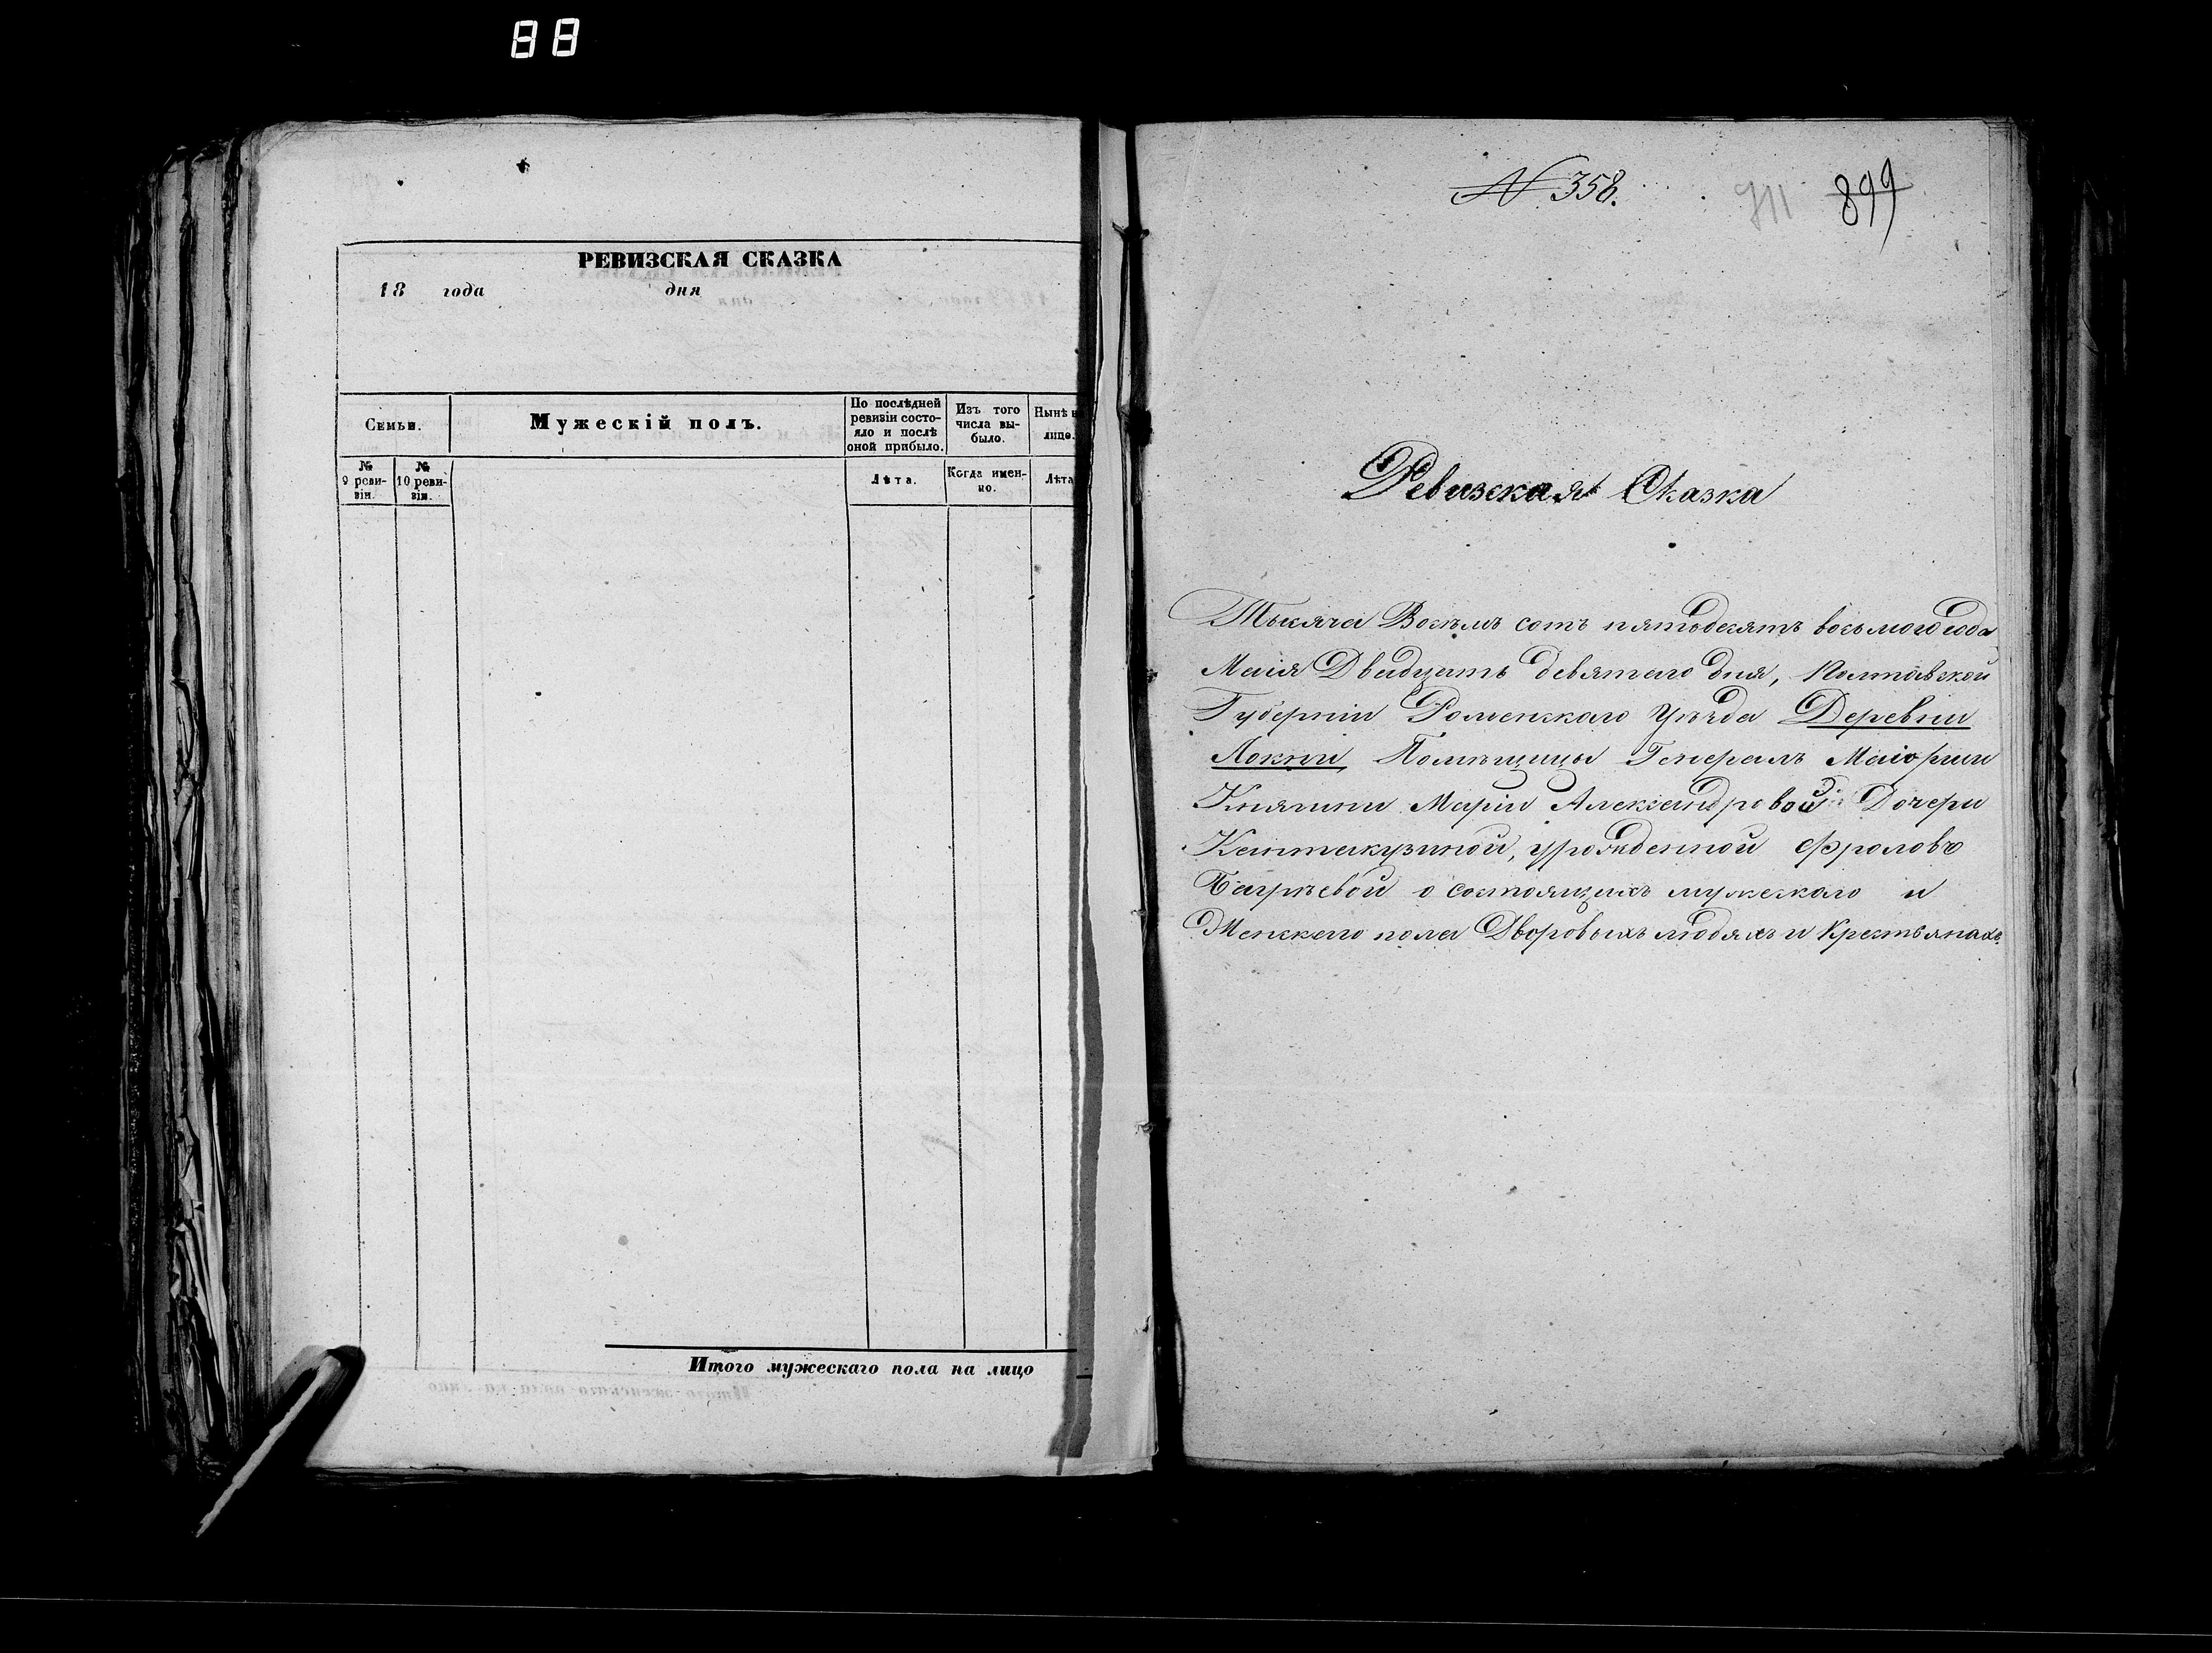 88
РЕВИЗСКАЯ СКАЗКА
18 года дня
Семьи.
Мужескій полъ.
По послѣдней ревизіи состояло и послѣ оной прибыло.
Изъ того числа выбыло.
Нынѣ на лицо.
№ 9 ревизіи.
№ 10 ревизіи.
Лѣта.
Когда именно.
Лѣта
Итого мужескаго пола на лицо
№ 358.
711
899
Ревизская Сказка
Тысяча Восемь сотъ пятьдесятъ восьмого года
Маія Двадцать девятаго дня, Полтавской
Губерніи Роменскаго Уѣзда Деревни
Локни, Помѣщицы Генералъ Маіорши
Княгини Маріи Александровой Дочери
Кантакузиной, урожденной Фроловъ
Багрѣевой о состоящихъ мужескаго и
Женскаго пола Дворовыхъ людяхъ и Крестьянахъ.